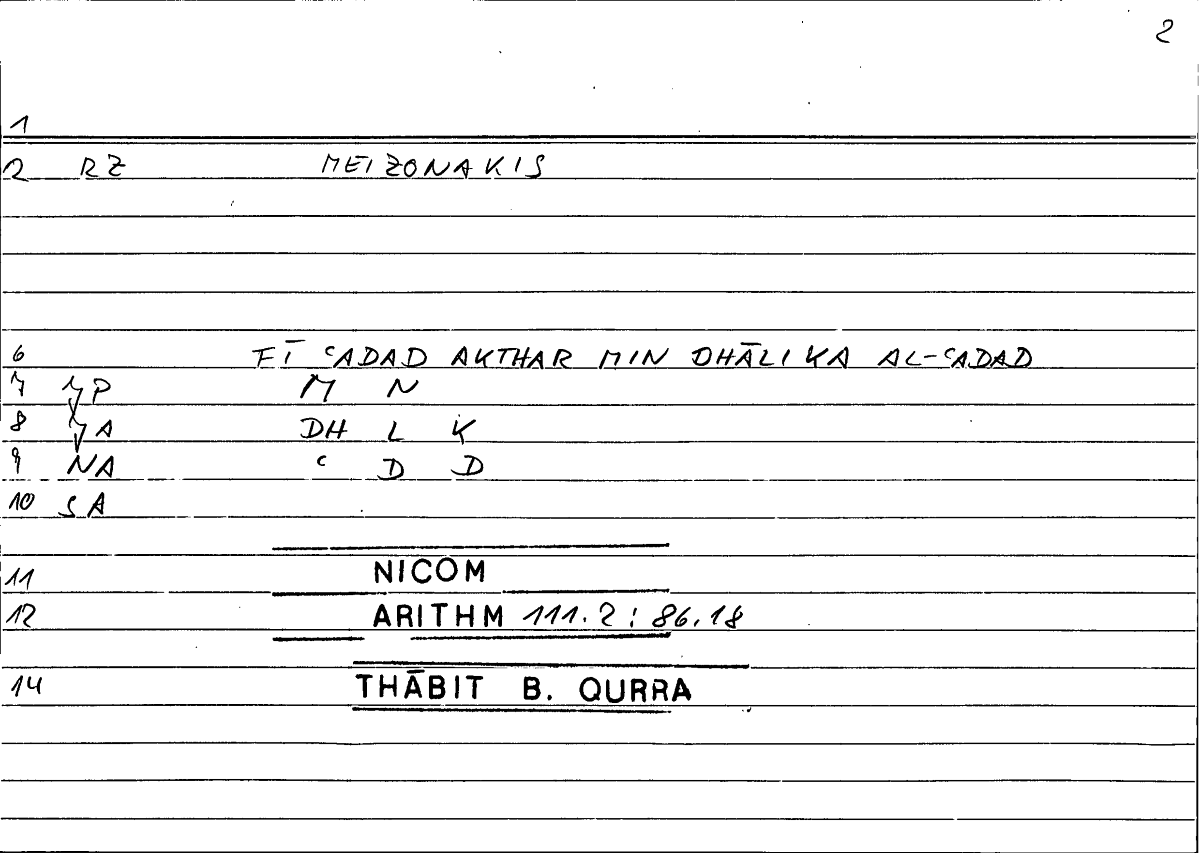 2
1
2 RZ MEIZONAKIS
6 FĪ ʿADAD AKTHAR MIN DHĀLIKA AL-ʿADAD
7 P M N
8 A DH L K
9 NA ʿ D D
10 SA
11 NICOM
12 ARITHM 111.2 : 86.18
14 THĀBIT B. QURRA